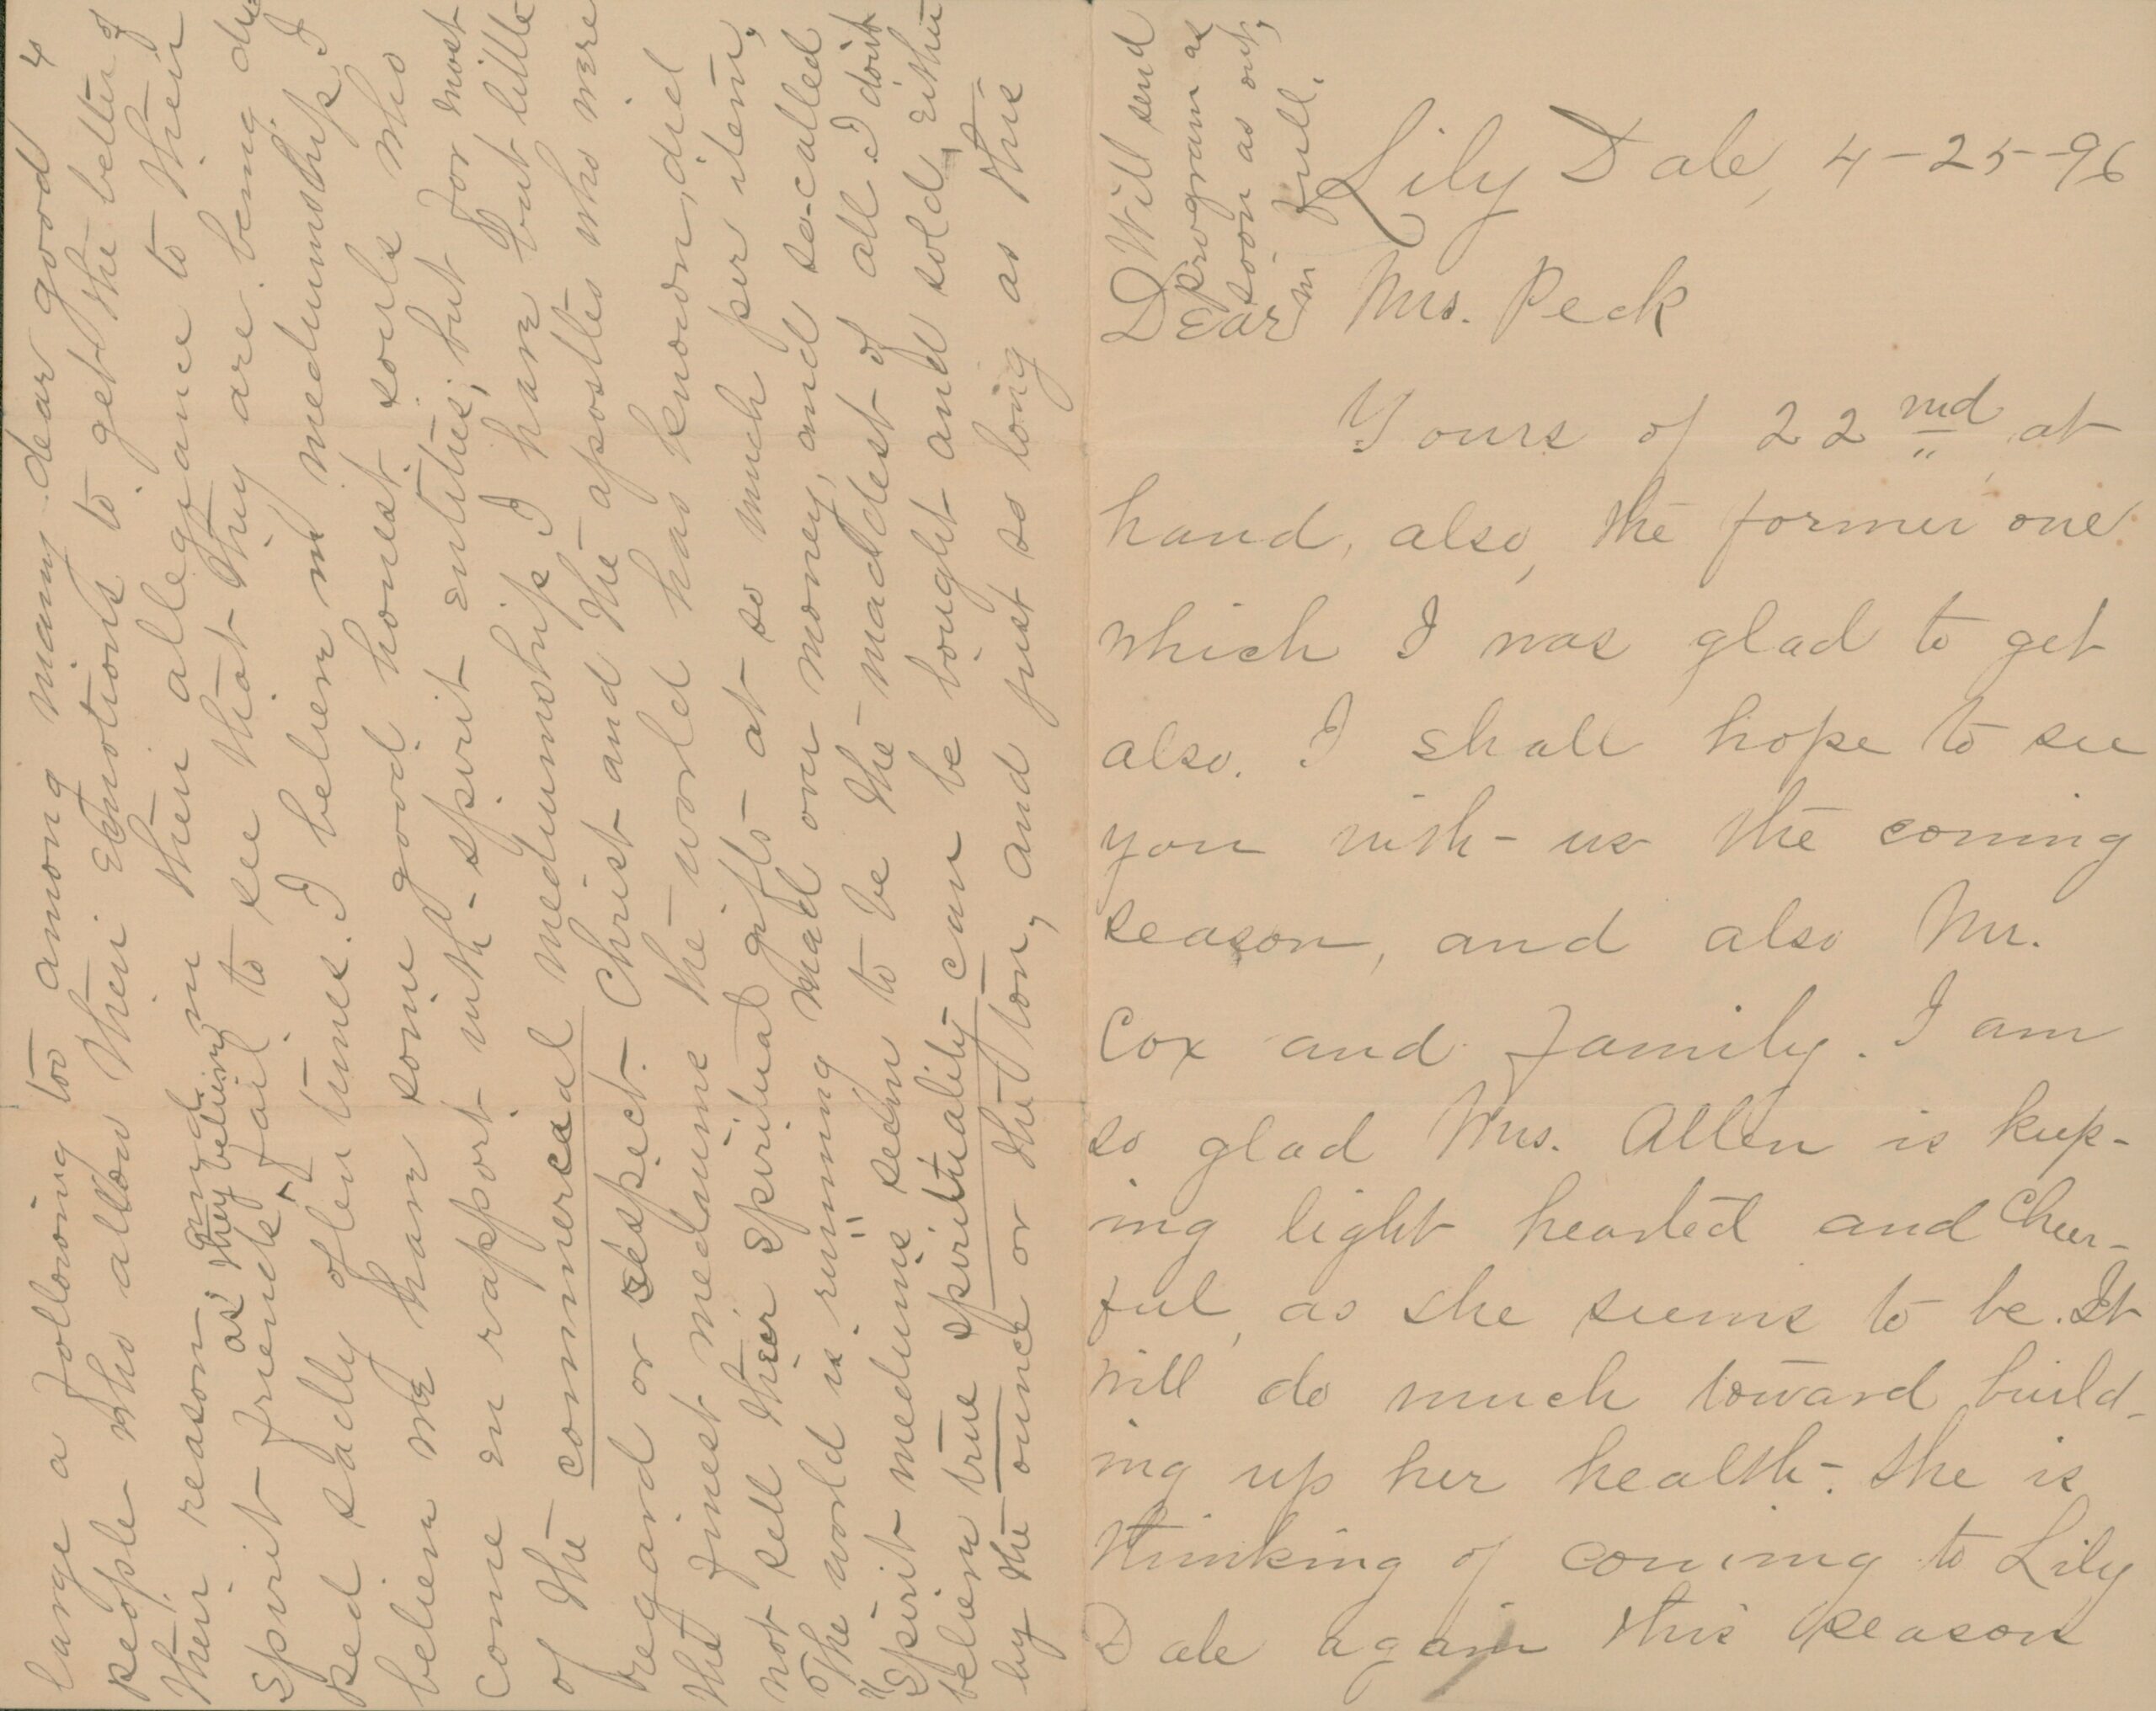 Will send
program as
soon as out,
in full.
Lily Dale, 4-25-96
Dear Mrs. Peck
Yours of 22nd at
hand, also, the former one
which I was glad to get
also. I shall hope to see
you with us the coming
season, and also Mr.
Cox and family. I am
so glad Mrs. Allen is keep-
ing light hearted and cheer-
ful, as she seems to be. It
will do much toward build-
ing up her health - she is
thinking of coming to Lily
Dale again this season
4
large a following too among many dear good
people who allow their emotions to get the better of
their reason and in their allegiance to their
spirit friends as they believe fail to see that they are being du-
ped sadly often times. I believe in mediumship I
believe we have some good honest souls who
come en rapport with spirit entities, but for most
of the commercial mediumship I have but little
regard or respect. Christ and the apostles who were
the finest mediums the world has known, did
not sell their spiritual gifts at so much per item,
The world is running mad over money, and so-called
"Spirit mediums seem to be the maddest of all. I dont
believe true spirituality can be bought and sold, either
by the ounce or the ton, and just so long as this